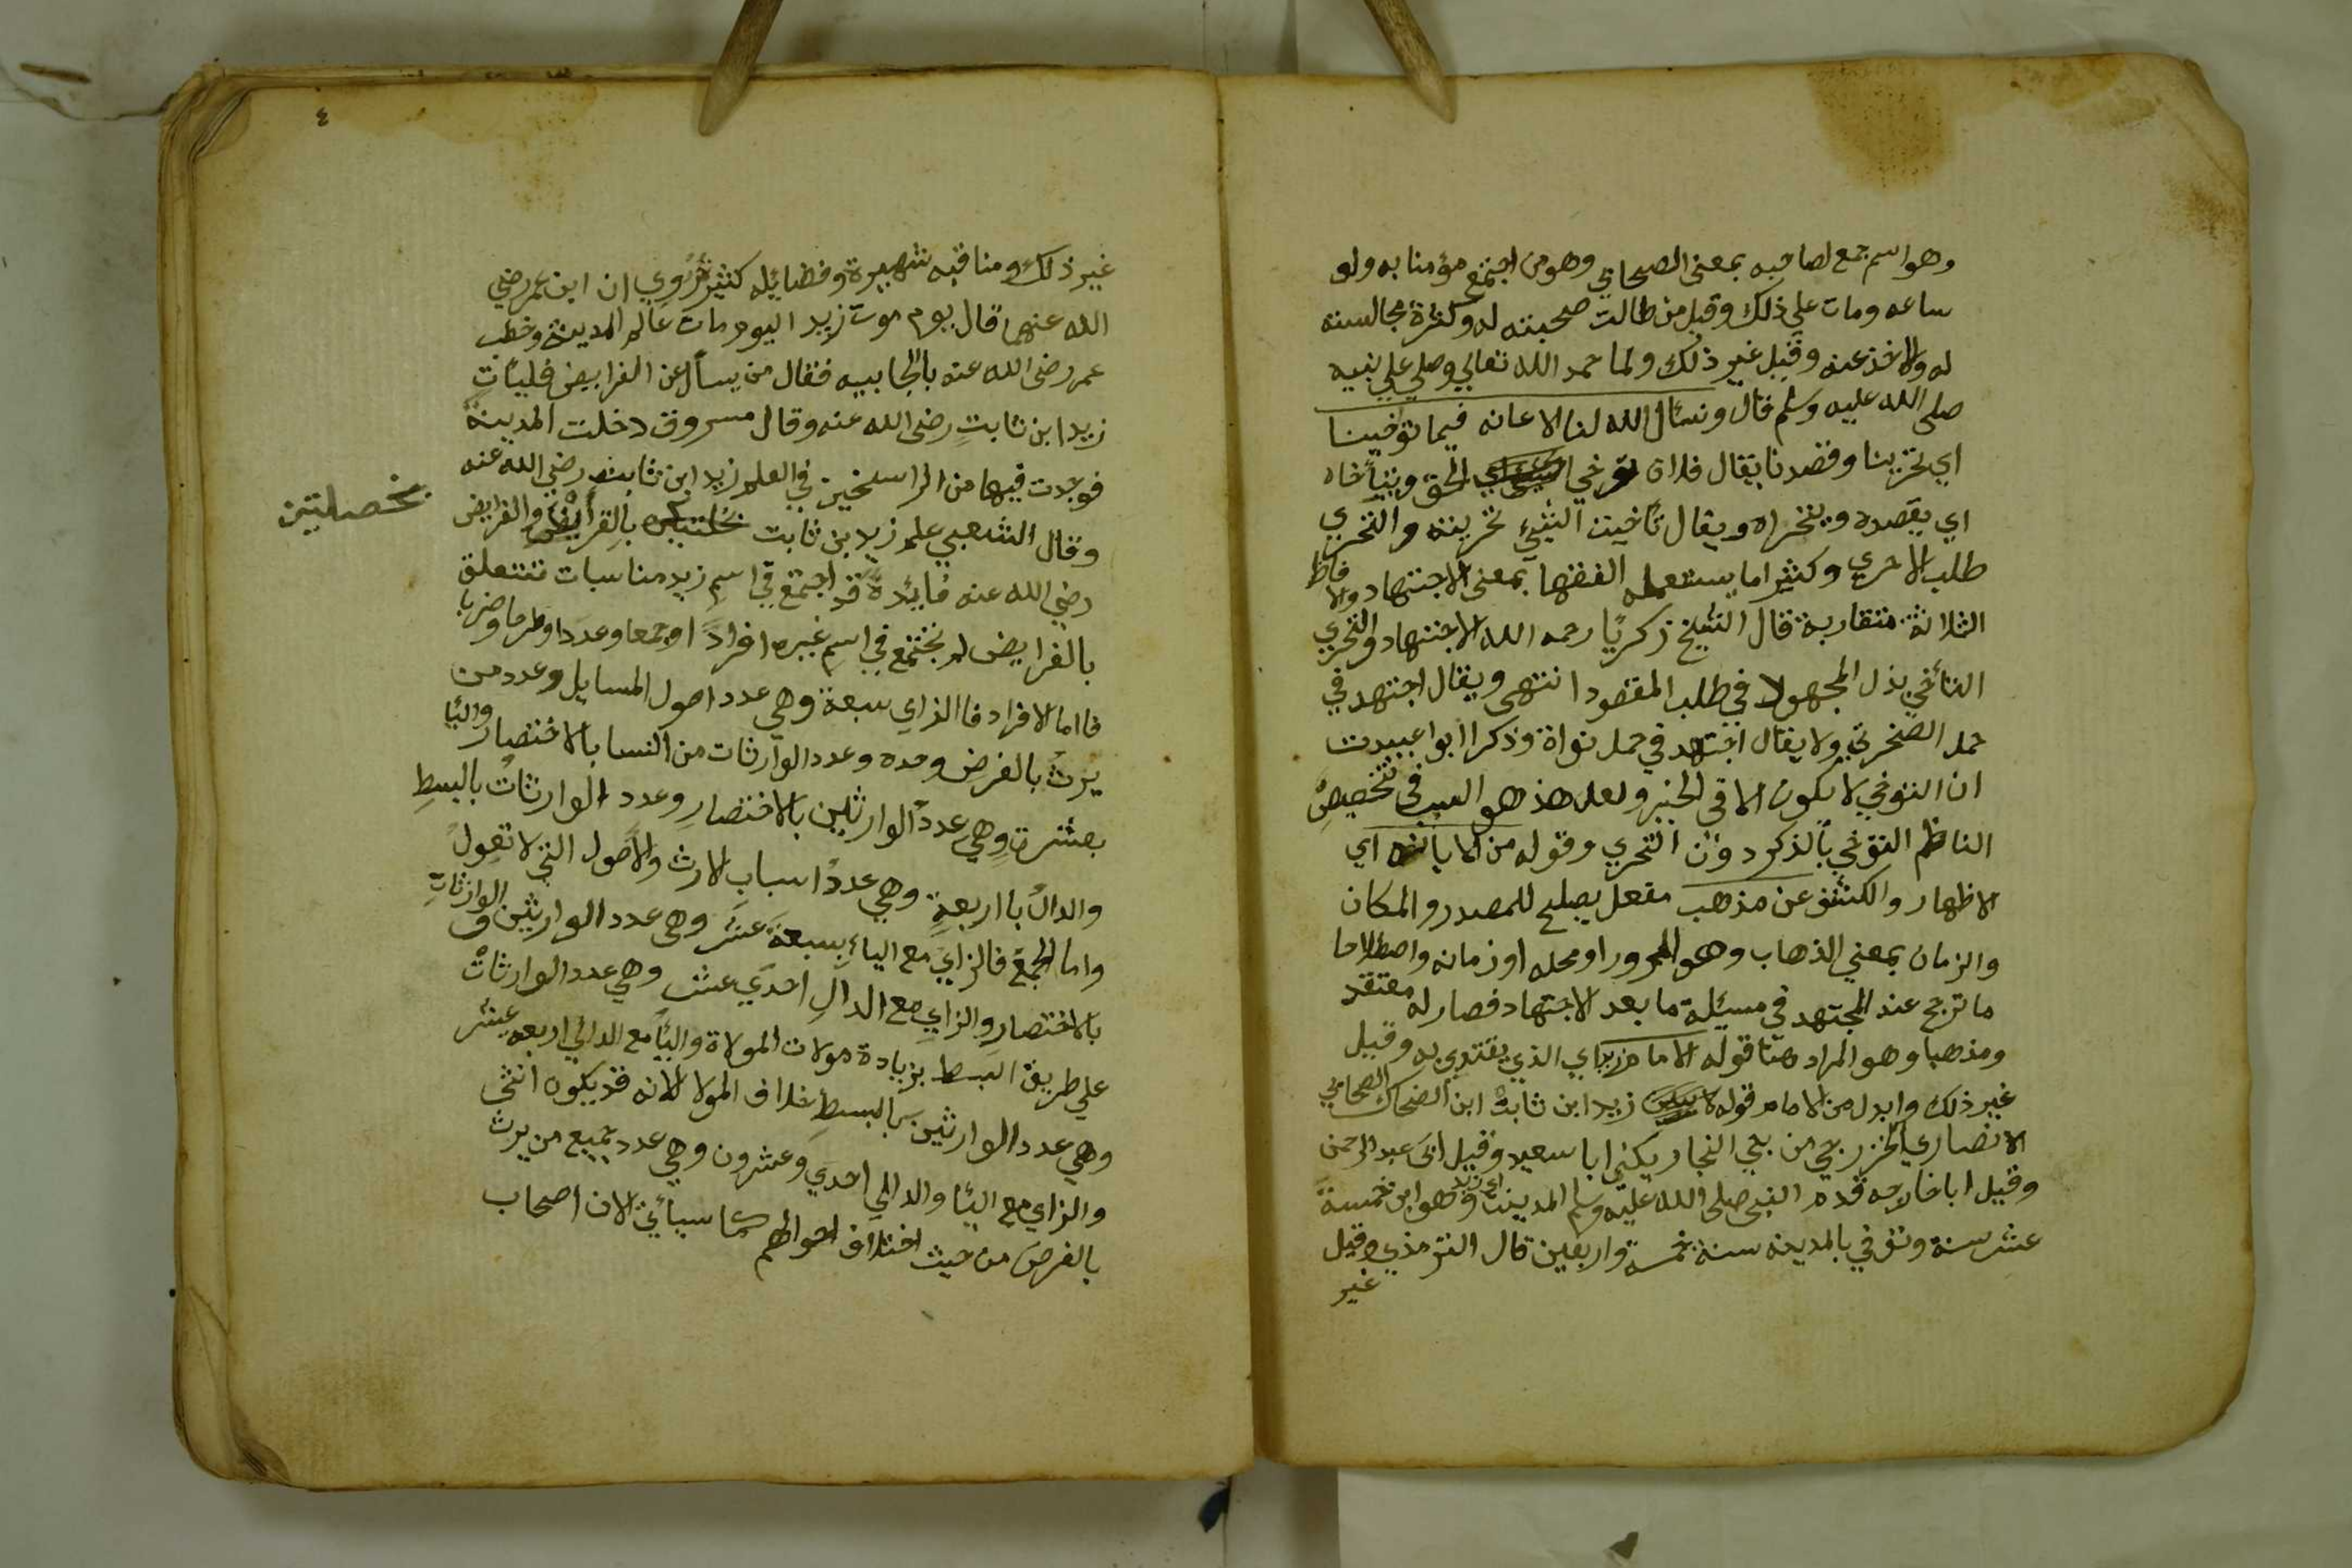 وهو اسم جمع لصاحبه بمعنى الصحابي وهو من اجتمع مؤمنا به ولو
ساعه ومات علي ذلك وقيل من طالت صحبته له وكثرة مجالسته
له والاخذ عنه وقيل غير ذلك ولما حمد الله تعالي وصلي علي نبيه
صلى الله عليه وسلم قال ونسأل الله لنا الاعانه فيما توخينا
اي تحرينا وقصدنا يقال فلان توخي الحق ويتأخاه
اي يقصده ويتحراه ويقال تأخيت الشيئ تحريته والتحري
طلب الاحري وكثيرا ما يستعمله الفقها بمعنى الاجتهاد والالفاظ
الثلاثة متقاربة قال الشيخ زكريا رحمه الله الاجتهاد والتحري
التأخي بذل المجهود في طلب المقصود انتهى ويقال اجتهد في
حمل الصخرة ولا يقال اجتهد في حمل نواة وذكر ابوا عبيدت
ان التوخي لا يكون الا في الخير ولعل هذ هو السبب في تخصيص
الناظم التوخي بالذكر دون التحري وقوله من الابانه اي
الاظهار والكشف عن مذهب مفعل يصلح للمصدر والمكان
والزمان بمعني الذهاب وهو المرور او محله او زمانه واصطلاحا
ما ترجح عند المجتهد في مسئلة ما بعد الاجتهاد فصار له معتقد
ومذهبا وهو المراد هنا قوله الامام زيد اي الذي يقتدي به وقيل
غير ذلك وابدل من الامام قوله زيد ابن ثابت ابن الضحاك الصحابي
الانصاري الخزرجي من بني النجار يكني ابا سعيد وقيل ابى عبد الرحمن
وقيل ابا خارجه قدم النبي صلى الله عليه وسلم المدينة اي زيد وهو ابن خمسة
عشر سنة وتوفي بالمدينه سنة خمسة واربعين قال الترمذي وقيل
غير
٤
غير ذلك ومناقبه شهيرة وفضايله كثيرة روي ان ابن عمر رضي
الله عنهما قال يوم موت زيد اليوم مات عالم المدينة وخطب
عمر رضى الله عنه بالجابيه فقال من يسأل عن الفرايض فليأت
زيد ابن ثابت رضى الله عنه وقال مسروق دخلت المدينة
فوجدت فيها من الراسخين في العلم زيد ابن ثابت رضي الله عنه
وقال الشعبي علم زيد بن ثابت بخصلتين بالقرأن والفرايض
رضي الله عنه فائدة قد اجتمع في اسم زيد مناسبات تتعلق
بالفرايض لم تجتمع في اسم غيره افراداً وجمعا وعددا وطرحا وضربا
فاما الافراد فا الزاي سبعة وهي عدد اصول المسايل وعدد من
يرث بالفرض وحده وعدد الوارثات من النسا بالاختصار واليا
بعشرة وهي عدد الوارثين بالاختصار وعدد الوارثات بالبسط
والدال با اربعة وهي عدد اسباب الارث والاصول التي لا تعول
واما الجمع فالزاي مع الياء بسبعة عشر وهى عدد الوارثين و الوارثات
بالاختصار والزاي مع الدال احدي عشر وهي عدد الوارثات
علي طريق البسط بزيادة مولات المولاة واليا مع الدال اربعه عشر
وهي عدد الوارثين بالبسط خلاف المولا لانه قد يكون انثى
والزاي مع اليا والدال احدي وعشرون وهي عدد جميع من يرث
بالفرض من حيث اختلاف احوالهم كما سيأتي لان اصحاب